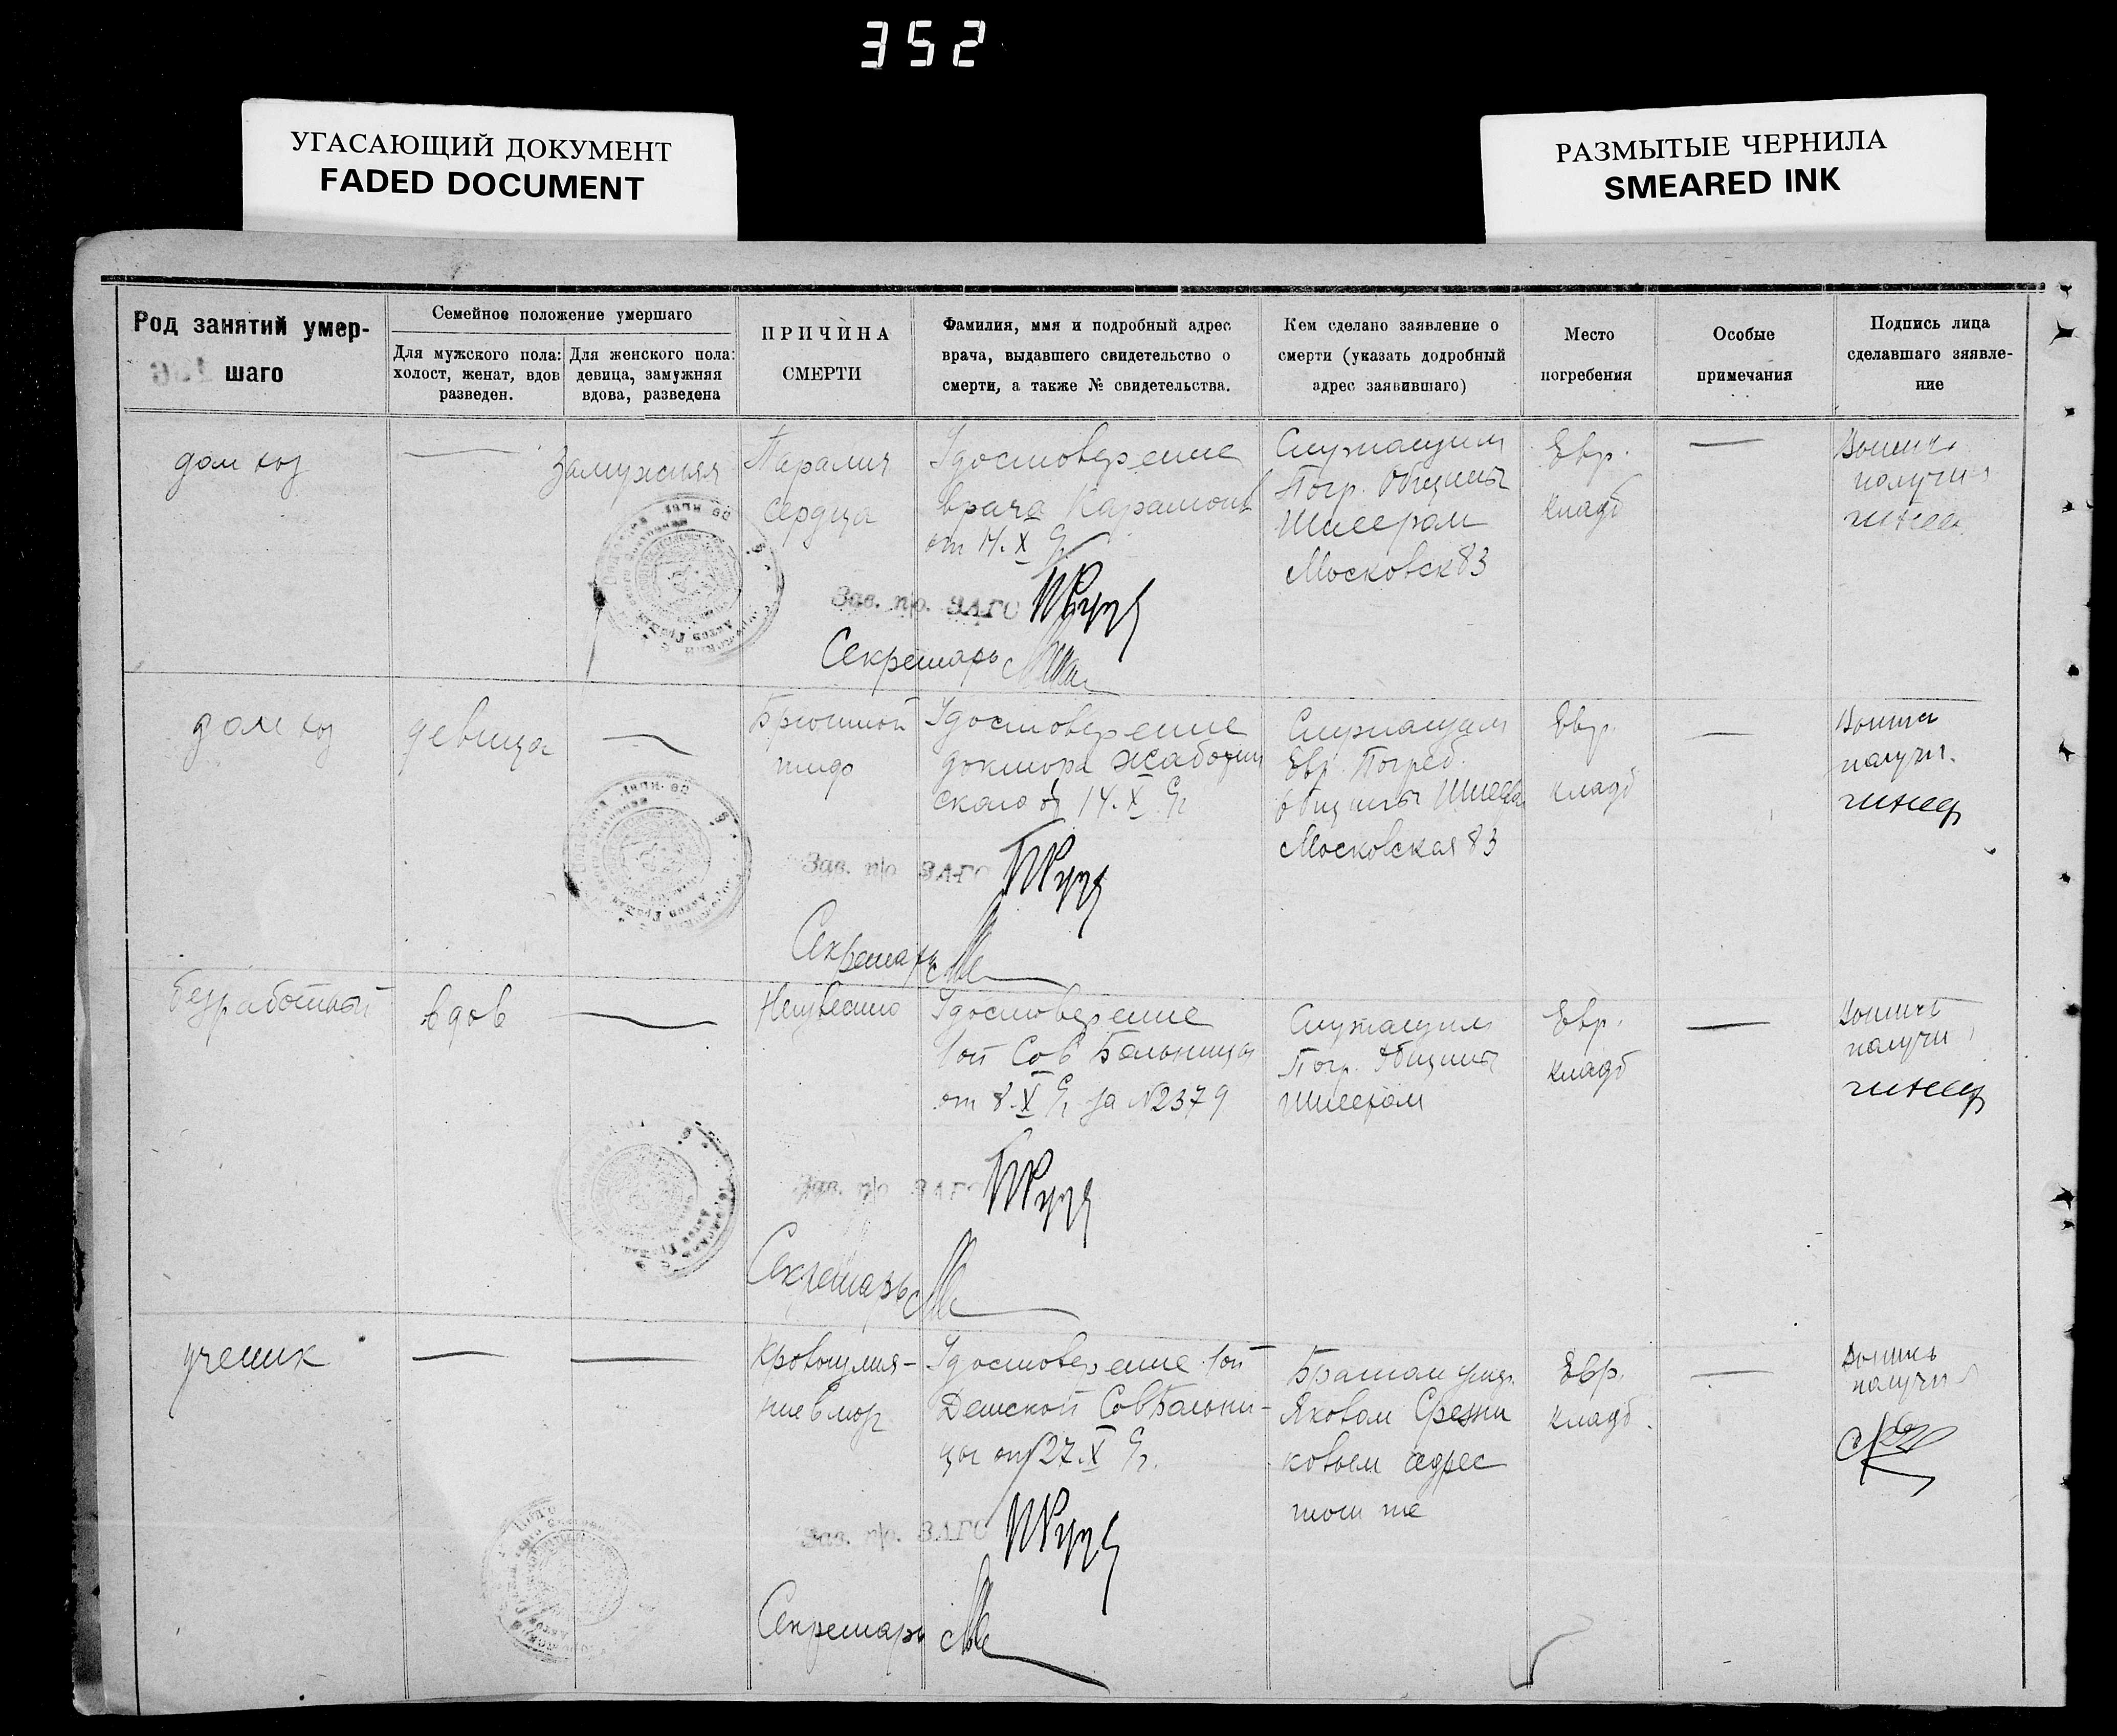 352
УГАСАЮЩИЙ ДОКУМЕНТ
FADED DOCUMENT
РАЗМЫТЫЕ ЧЕРНИЛА
SMEARED INK
Род занятий умер-
шаго
Семейное положение умершаго
Для мужского пола:
холост, женат, вдов
разведен.
Для женского пола:
девица, замужняя
вдова, разведена
ПРИЧИНА
СМЕРТИ
Фамилия, имя и подробный адрес
врача, выдавшего свидетельство о
смерти, а также № свидетельства.
Кем сделано заявление о
смерти (указать додробный
адрес заявившаго)
Место
погребения
Особые
примечания
Подпись лица
сделавшаго заявле-
ние
дом хоз
—
замужняя
Паралич
сердца
Удостоверение
врача
от 14.X
Служащим
Погр. Общины
Шнеером
Московск 83
Евр.
кладб
—
получил
Зав. п/о. ЗАГС
Секретарь
дом хоз
девица
—
Брюшной
тиф
Удостоверение
доктора Жаботин
ского от 14.X
Служащим
Евр. Погреб.
общины
Московская 83
Евр.
кладб
—
получил
Зав. п/о ЗАГС
Секретарь
безработный
вдов
—
Неизвестно
Удостоверение
1ой Сов Больницы
от 8.X за №2379
Служащим
Погр. Общины
Шнеером
Евр.
кладб
—
получил
Зав. п/о ЗАГС
Секретарь
ученик
—
—
Кровоизлия-
ние в мозг
Удостоверение 1ой
Детской СовБольни-
цы от 27.X
Братом
Яковом Срезни
ковым адрес
тот же
Евр.
кладб.
—
получил
Зав. п/о. ЗАГС
Секретарь